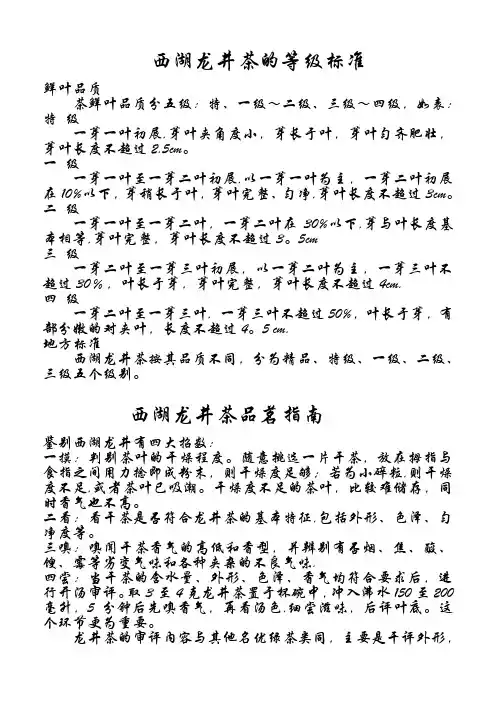 西湖龙井茶的等级标准
鲜叶品质
茶鲜叶品质分五级：特、一级～二级、三级～四级，如表：
特 级
一芽一叶初展,芽叶夹角度小，芽长于叶，芽叶匀齐肥壮，
芽叶长度不超过2.5cm。
一 级
一芽一叶至一芽二叶初展,以一芽一叶为主，一芽二叶初展
在10%以下，芽稍长于叶，芽叶完整、匀净,芽叶长度不超过3cm。
二 级
一芽一叶至一芽二叶，一芽二叶在 30%以下,芽与叶长度基
本相等,芽叶完整，芽叶长度不超过3。5cm
三 级
一芽二叶至一芽三叶初展，以一芽二叶为主，一芽三叶不
超过30％，叶长于芽，芽叶完整，芽叶长度不超过4cm.
四 级
一芽二叶至一芽三叶,一芽三叶不超过50%，叶长于芽，有
部分嫩的对夹叶，长度不超过4。5 cm.
地方标准
西湖龙井茶按其品质不同，分为精品、特级、一级、二级、
三级五个级别。
西湖龙井茶品茗指南
鉴别西湖龙井有四大招数：
一摸：判别茶叶的干燥程度。随意挑选一片干茶，放在拇指与
食指之间用力捻即成粉末，则干燥度足够；若为小碎粒,则干燥
度不足,或者茶叶已吸潮。干燥度不足的茶叶，比较难储存，同
时香气也不高。
二看：看干茶是否符合龙井茶的基本特征,包括外形、色泽、匀
净度等。
三嗅：嗅闻干茶香气的高低和香型，并辨别有否烟、焦、酸、
馊、霉等劣变气味和各种夹杂的不良气味.
四尝：当干茶的含水量、外形、色泽、香气均符合要求后，进
行开汤审评。取3至4克龙井茶置于杯碗中，冲入沸水150至200
毫升，5 分钟后先嗅香气，再看汤色,细尝滋味，后评叶底。这
个环节更为重要。
龙井茶的审评内容与其他名优绿茶类同，主要是干评外形，